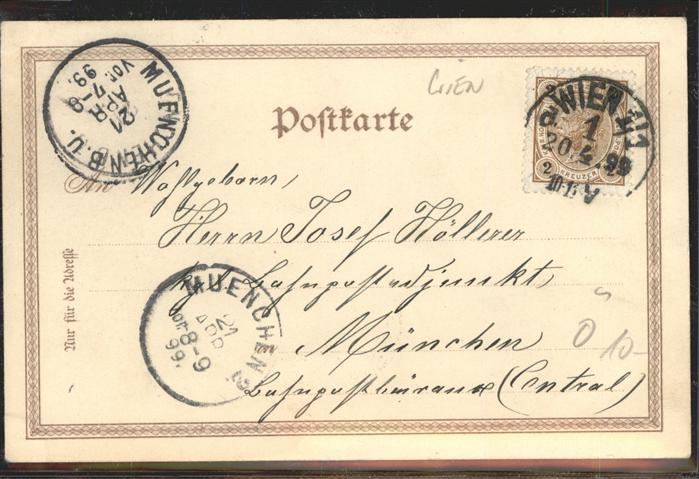 MUENCHEN B.U.
21
APR
Vor. 7-8
99.
WIEN
Postkarte
WIEN 1/1
1
20 4 99
KREUZER
An Wohlgeborn,
Herrn Josef Höllerer
Bahnpostadjunkt,
München
Bahnpostbureaux (Central)
Nur für die Adresse
MUENCHEN 2
21
APR
Vor. 8-9
99.
10-